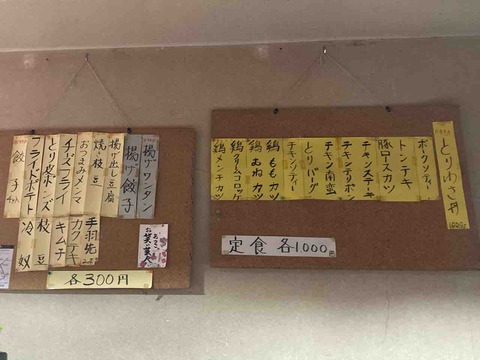 とりわさ丼
ポークソテー
トンテキ
豚ロースカツ
チキンステーキ
チキンテリポン
チキン南蛮
とりバーグ
チキンソテー
鶏ももカツ
鶏むねカツ
鶏クリームコロッケ
鶏メンチカツ
定食 各1,000円
揚げワンタン
揚げ餃子
揚げ出し豆腐
焼枝豆
おつまみメンマ
チーズフライ
とり皮ポンズ
フライドポテト
餃子
手羽先
カクテキ
キムチ
冷奴
各300円